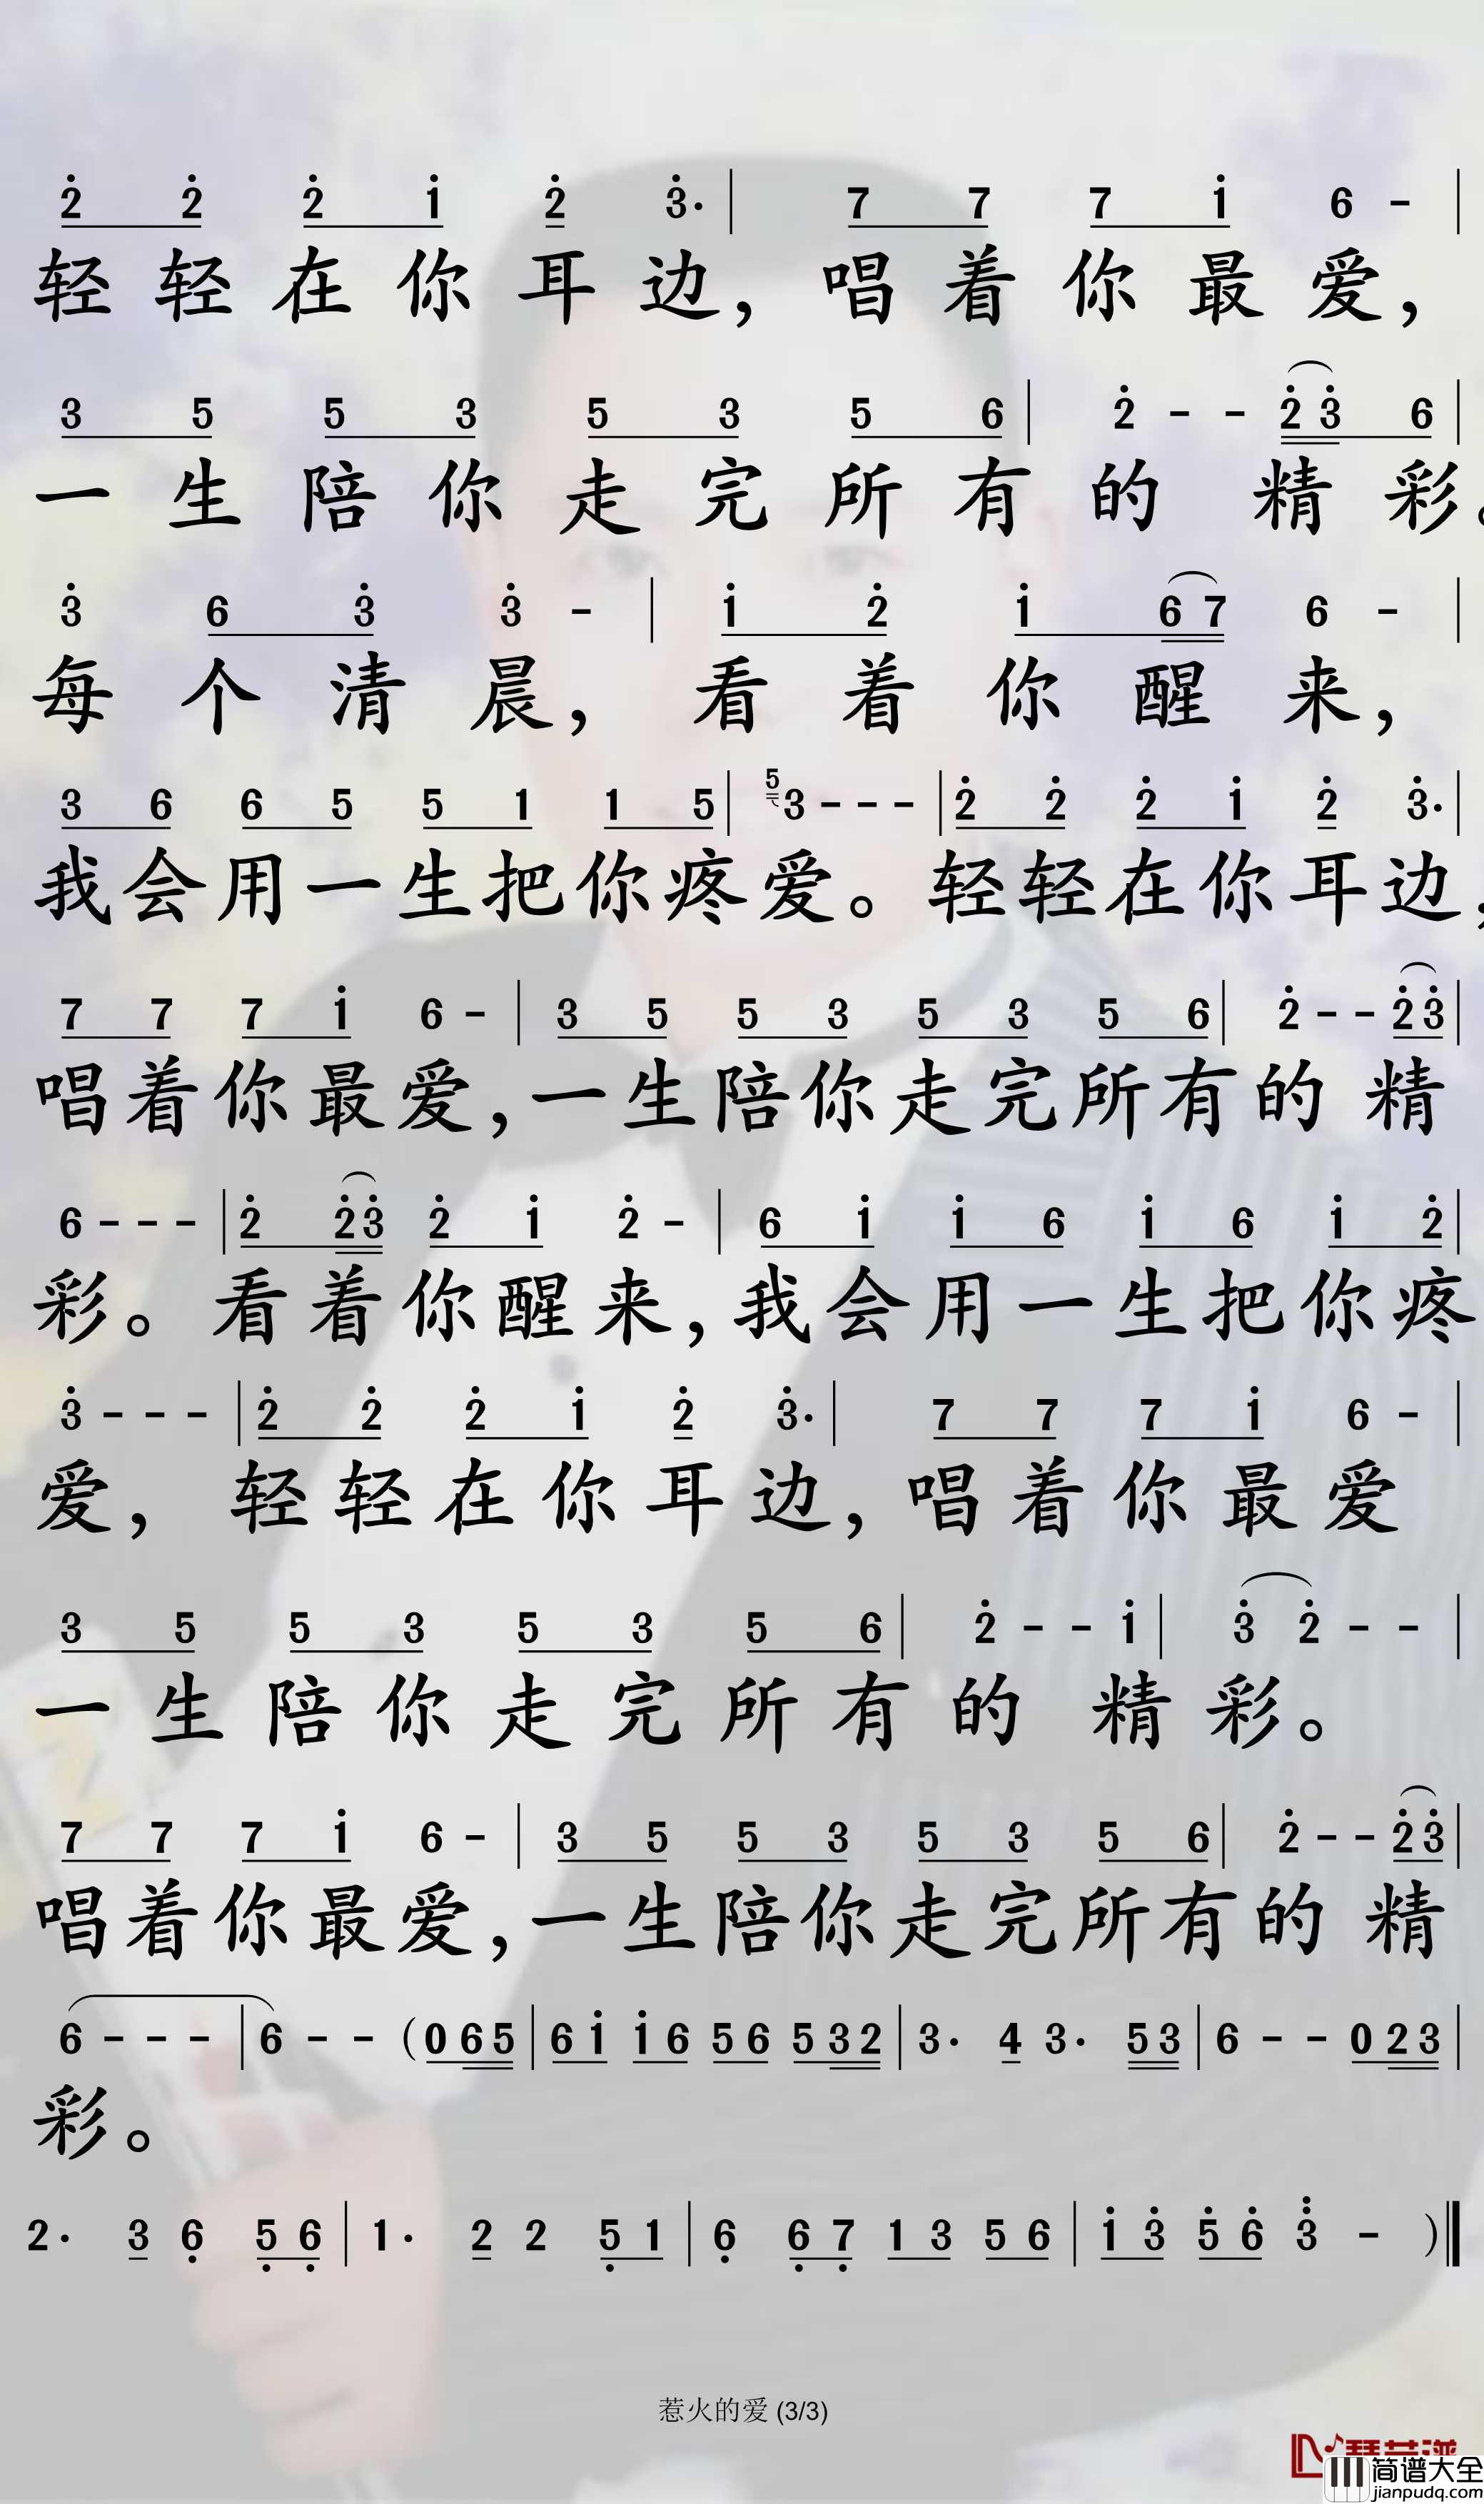 2 2 2 1 2 3· | 7 7 7 1 6 - |
轻轻在你耳边，唱着你最爱，
3 5 5 3 5 3 5 6 | 2 - - 2 3 6 |
一生陪你走完所有的精彩。
3 6 3 3 - | 1 2 1 6 7 6 - |
每个清晨，看着你醒来，
3 6 6 5 5 1 1 5 | 5 3 - - - | 2 2 2 1 2 3· |
我会用一生把你疼爱。轻轻在你耳边，
7 7 7 1 6 - | 3 5 5 3 5 3 5 6 | 2 - - 2 3 |
唱着你最爱，一生陪你走完所有的精
6 - - - | 2 2 3 2 1 2 - | 6 1 1 6 1 6 1 2 |
彩。看着你醒来，我会用一生把你疼
3 - - - | 2 2 2 1 2 3· | 7 7 7 1 6 - |
爱，轻轻在你耳边，唱着你最爱
3 5 5 3 5 3 5 6 | 2 - - 1 | 3 2 - - |
一生陪你走完所有的精彩。
7 7 7 1 6 - | 3 5 5 3 5 3 5 6 | 2 - - 2 3 |
唱着你最爱，一生陪你走完所有的精
6 - - - | 6 - - (0 6 5 | 6 1 1 6 5 6 5 3 2 | 3· 4 3· 5 3 | 6 - - 0 2 3 |
彩。
2· 3 6 5 6 | 1· 2 2 5 1 | 6 6 7 1 3 5 6 | 1 3 5 6 3 - )‖
惹火的爱 (3/3)
简谱大全
jianpudq.com